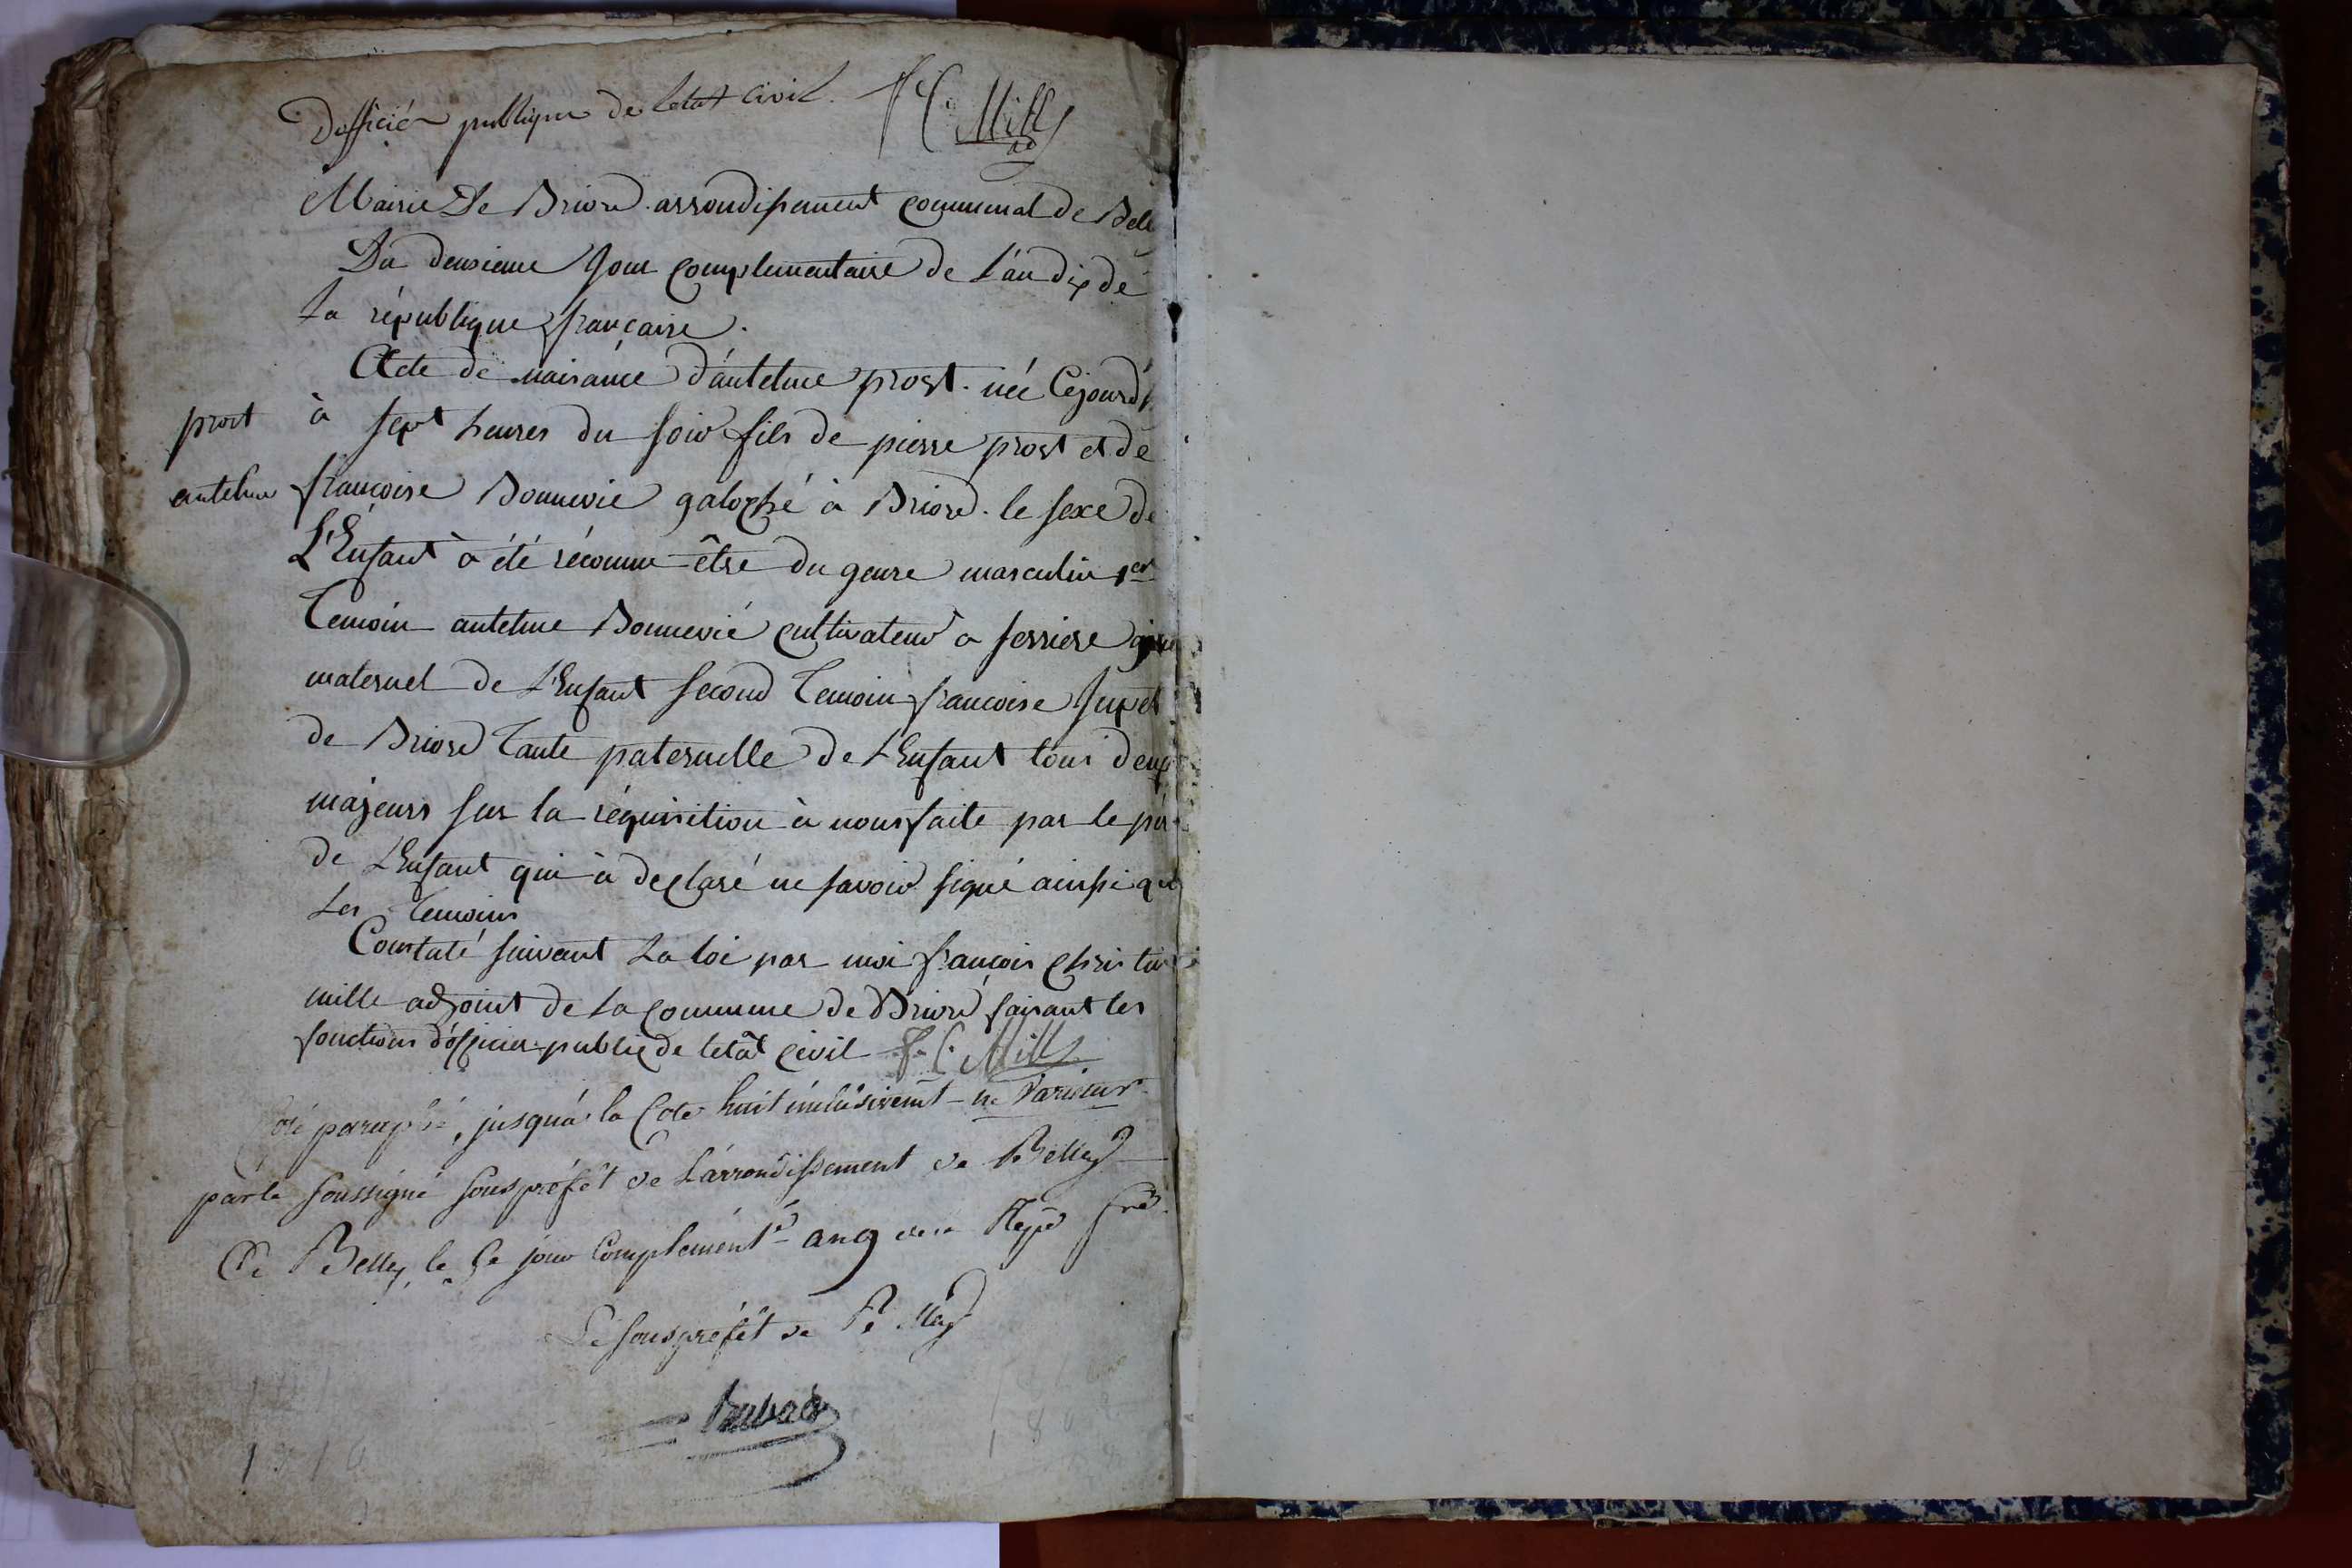 Dofficier publique de letat civil. F C Mille
ad
Mairie De Briord. arrondissement communal de Belle
Du deuxieme Jour complementaire de L'an dix de
La république française.
Acte de naisance d'antelme prost. née Cejourd'h
prost
à sept heures du soir fils de pierre prost et de
antelme
françoise Bonnevie galoché à Briord. le sexe de
L'Enfant à été réconnu être du genre masculin 1er
Temoin antelme Bonnevié cultivateur a serriere
maternel de L'Enfant second Temoin francoise
de Briord Tante paternelle de L'Enfant tous deux
majeurs sur la réquisition à nous faite par le pèr
de L'Enfant qui à declaré ne savoir signé ainsi que
Les Temoins
Constaté suivant La loi par moi françois christin
mille adjoint de La commune de Briord faisant les
fonctions d'officier public de letât civil F. C. Mille
Coté paraphé, jusquà la Cote huit inclusivemt ne Varietur
par le soussigné sous préfét de L'arrondissement de Belley
A Belley, le 5e jour Complementre an 9 de la Repe fse.
Le sous préfét de Belley
Rubat